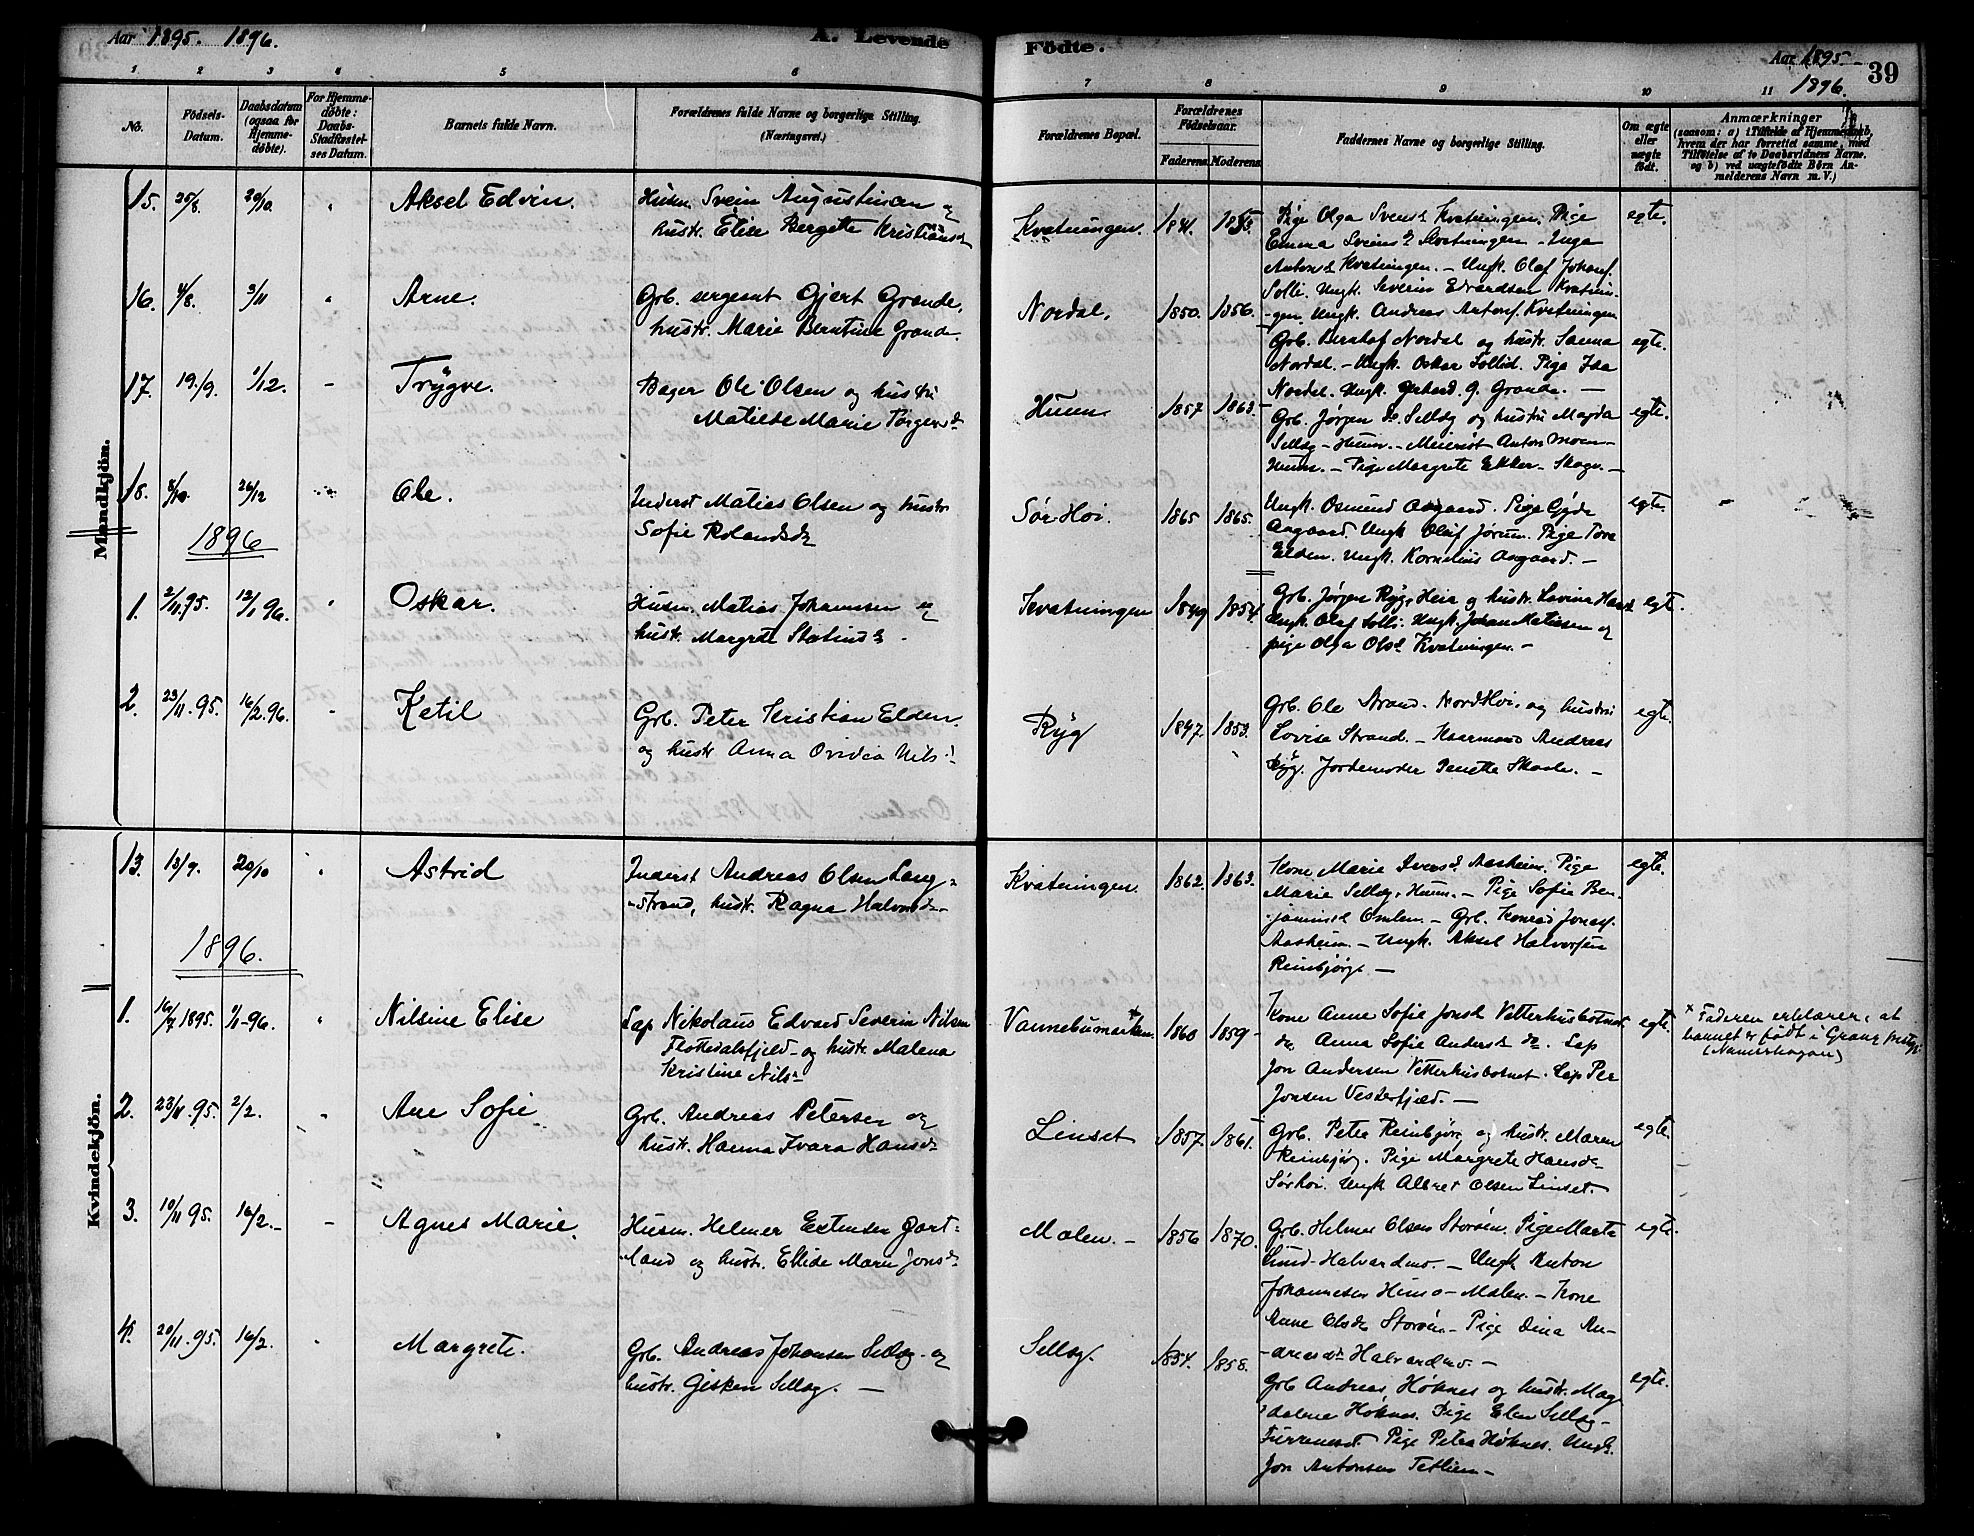 Aar 1895. 1896.
A. Levende Födte.
Aar 1895-
1896.
39
1 2 3 4 5 6 7 8 9 10 11
No.
Födsels-
Datum.
Daabsdatum
(ogsaa for
Hjemme-
døbte).
For Hjemme-
døbte:
Daabs-
Stadfæstel-
ses Datum.
Barnets fulde Navn.
Forældrenes fulde Navne og borgerlige Stilling.
(Næringsvei.)
Forældrenes Bopæl.
Forældrenes
Fødselsaar.
Faderens. Moderens.
Faddernes Navne og borgerlige Stilling.
Om ægte
eller
uægte
født.
Anmærkninger
(saasom: a) i Tilfælde af Hjemmedaab,
hvem der har forrettet samme, med
Tilföielse af to Daabsvidners Navne,
og b) ved uægtefödte Börn An-
melderens Navn m. V.)
Mandkjön.
15. 25/8. 20/10. Aksel Edvin.
Husm. Svein Augustinsen og
hustr. Elise Bergitte Kristians
Kvatningen. 1841. 1855.
Pige Olga Svensd Kvatningen. Pige
Emma Sveinsd Kvatningen - Inga
Antonsd Kvatningen. - Ungk. Olaf Johans.
Solli. Ungk. Severin Edvardsen Kvatnin-
gen. Ungk. Andreas Antons. Kvatningen
egte.
16. 4/8. 3/11 Arne.
Grb. sergeant Gjert Grande,
hustr. Marie Berntine Grande.
Nordal. 1850. 1856.
Grb. Bernhof Nordal og hustr. Sanna
Nordal. - Ungk. Oskar Sollid. Pige Ida
Nordal. Ungk. Gerhard G. Grande. -
egte.
17. 19./9. 1/12. Trygve.
Bager Ole Olsen og hustru
Matilde Marie Torgersd
Huun. 1857 1863-
Grb. Jørgen Sellæg og hustru Magda
Sellæg - Huun. - Meierist Anton Moen -
Huun. - Pige Margrete Ekker - Skage. -
egte.
18. 8/10. 26/12 Ole.
Inderst Matias Olsen og hustr.
Sofie Rolandsd
Sør Høi. 1865 1865.
Ungk. Osmund Aagaard. Pige Gyda
Aagaard. Ungk Olaf Jørum. Pige Tora
Elden. Ungk. Kornelius Aagaard. -
egte.
1896
1. 2/11.95. 12/1 96. Oskar.
Husm. Matias Johannsen og
hustr. Margrete Statinsd.
Kvatningen 1849 1854.
Grb. Jørgen Ryg, Heia og hustr. Lovina Hansd
Ungk. Olaf Solli. Ungk. Johan Matiasen og
pige Olga Olsd Kvatningen. -
egte.
2. 23/11.95. 16/2.96. Ketil
Grb. Peter Kristian Elden
og hustr Anna Ovidia Nilsd
Ryg 1847. 1853.
Grb. Ole Strand. Nord Høi. og hustru
Lovise Strand. - Haarmand Andreas
Ryg. Jordemoder Janetta Skaale. -
egte.
Kvindekjön.
13. 13/9. 20/10 Astrid
Inderst Andreas Olsen Lang-
strand, hustr. Ragna Halvorsd.
Kvatningen. 1862. 1863.
Kone Marie Iversd Aasheim. Pige
Marie Sellæg, Huun. - Pige Sofie Ben-
jaminsd Omlen. - Grb. Konrad Jonas.
Aasheim. - Ungk. Aksel Halvorsen
Reinbjørg. -
egte.
1896.
1. 16/7 1895. 1/1-96. Nilsine Elise
Lap Nikolaus Edvard Severin Nilsen
Flottedalsfjeld - og hustr. Malena
Kristine Nilsd
Vannebumarken. 1860 1859-
Kone Anne Sofie Jonsd Vetterhusbotnet
do Anna Sofie Andersd do. Lap
Jon Andersen Vetterhusbotnet. Lap Per
Jonsen Vesterfjeld. -
egte.
x Faderen erklærer, at
barnet er født i Grong prstgj.
(Namsskogan)
2. 23/11.95. 2/2. Ane Sofie
Grb. Andreas Petersen og
hustr. Hanna Ivara Hansd
Linset 1857. 1861.
Grb. Peter Reinbjør og hustr. Maren
Reinbjørg. Pige Margrete Hansd
Sørhøi. Ungk Albert Olsen Linset.
egte.
3. 10/11 95. 16/2.- Agnes Marie.
Husm. Helmer Estensen Gart-
land og hustr. Ellide Marie Jonsd
Molen.- 1856 1870.
Grb. Helmer Olsen Storøen. Pige Marta
Lund - Halvardmo. - Ungk Anton
Johannesen Himo - Molen. - Kone
Anne Olsd Storøen - Pige Dina An-
dreasd Halvardmo. -
egte.
4. 20/11.95. 16/2. Margrete.
Grb. Andreas Johansen Sellæg - og
hustr. Gjsken Sellæg. -
Sellæg. 1854. 1858.
Grb Andreas Høknes og hustr. Mag-
dalene Høknes. Pige Elen Sellæg -
Pige Petra Høknes. Ungk.
Jon Antonsen Tetlien -
egte.